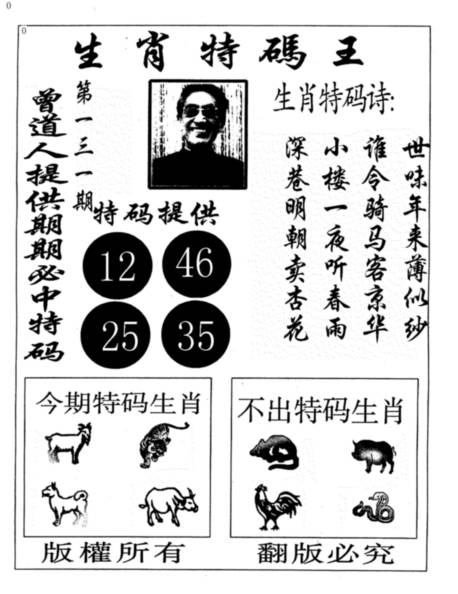 0
0
生肖特碼王
第一三一期
曾道人提供期期必中特码
特码提供
12
46
25
35
生肖特码诗:
世味年来薄似纱
谁令骑马客京华
小楼一夜听春雨
深巷明朝卖杏花
今期特码生肖
不出特码生肖
版權所有
翻版必究